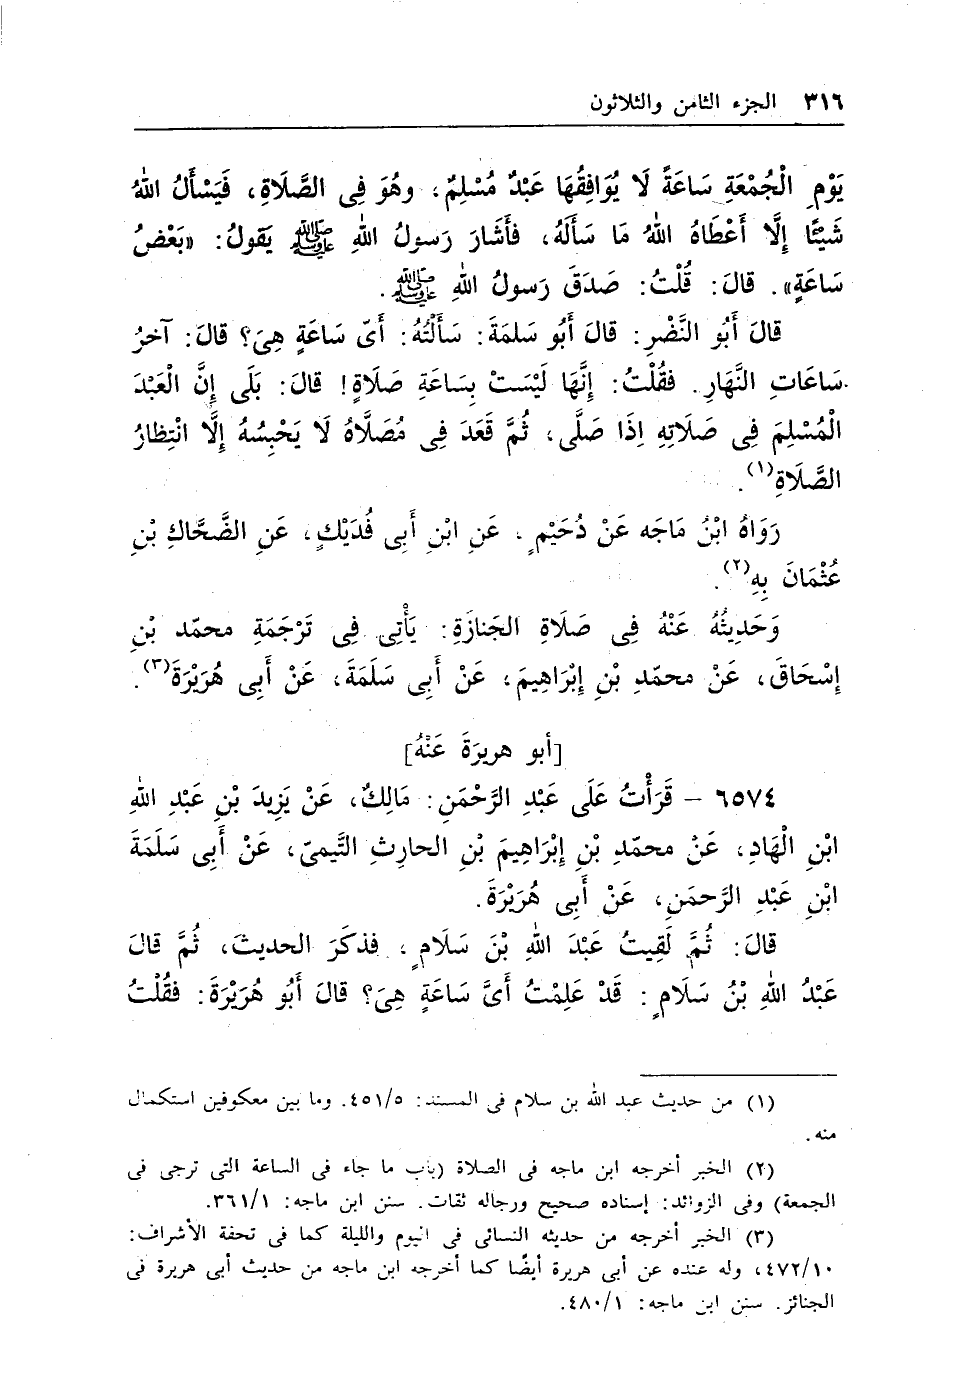 ٣١٦ الجزء الثامن والثلاثون
يَوْمِ الْجُمْعَةِ سَاعَةً لَا يُوَافِقُهَا عَبْدٌ مُسْلِمٌ، وهُوَ فِى الصَّلَاةِ، فَيَسْأَلُ اللهُ
شَيْئًا إِلَّا أَعْطَاهُ اللهُ مَا سَأَلَهُ، فأَشَارَ رَسولُ اللهِ ﷺ يَقولُ: «بَعْضُ
سَاعَةٍ». قالَ: قُلْتُ: صَدَقَ رَسولُ اللهِ ﷺ.
قالَ أَبُو النَّضْرِ: قالَ أَبُو سَلمَةَ: سَأَلْتُهُ: أَىّ سَاعَةٍ هِىَ؟ قالَ: آخرُ
سَاعَاتِ النَّهَارِ. فقُلْتُ: إِنَّهَا لَيْسَتْ بِسَاعَةِ صَلَاةٍ! قالَ: بَلَى إِنَّ الْعَبْدَ
الْمُسْلِمَ فِى صَلَاتِهِ إِذَا صَلَّى، ثُمَّ قَعَدَ فِى مُصَلَّاهُ لَا يَحْبِسُهُ إِلَّا انْتِظارُ
الصَّلَاةِ(١).
رَوَاهُ ابْنُ مَاجَه عَنْ دُحَيْمٍ، عَنِ ابْنِ أَبِى فُدَيْكٍ، عَنِ الضَّحَّاكِ بْنِ
عُثْمَانَ بِهِ(٢).
وَحَدِيثُهُ عَنْهُ فِى صَلَاةِ الجَنازَةِ: يَأْتِى فِى تَرْجَمَةِ محمّد بْنِ
إِسْحَاقَ، عَنْ محمّدِ بْنِ إِبْرَاهِيمَ، عَنْ أَبِى سَلَمَةَ، عَنْ أَبِى هُرَيْرَةَ(٣).
[أبو هريرَةَ عَنْهُ]
٦٥٧٤ – قَرَأْتُ عَلَى عَبْدِ الرَّحْمَنِ: مَالِكٌ، عَنْ يَزِيدَ بْنِ عَبْدِ اللهِ
ابْنِ الْهَادِ، عَنْ محمّدِ بْنِ إِبْرَاهِيمَ بْنِ الحارِثِ التَّيمِىّ، عَنْ أَبِى سَلَمَةَ
ابْنِ عَبْدِ الرَّحمَنِ، عَنْ أَبِى هُرَيْرَةَ.
قالَ: ثُمَّ لَقِيتُ عَبْدَ اللهِ بْنَ سَلَامٍ، فذكَرَ الحديثَ، ثُمَّ قالَ
عَبْدُ اللهِ بْنُ سَلَامٍ: قَدْ عَلِمْتُ أَىَّ سَاعَةٍ هِىَ؟ قالَ أَبُو هُرَيْرَةَ: فقُلْتُ
(١) من حديث عبد الله بن سلام فى المسند: ٤٥١/٥. وما بين معكوفين استكمال
منه.
(٢) الخبر أخرجه ابن ماجه فى الصلاة (باب ما جاء فى الساعة التى ترجى فى
الجمعة) وفى الزوائد: إسناده صحيح ورجاله ثقات. سنن ابن ماجه: ٣٦١/١.
(٣) الخبر أخرجه من حديثه النسائى فى اليوم والليلة كما فى تحفة الأشراف:
٤٧٢/١٠، وله عنده عن أبى هريرة أيضًا كما أخرجه ابن ماجه من حديث أبى هريرة فى
الجنائز. سنن ابن ماجه: ٤٨٠/١.